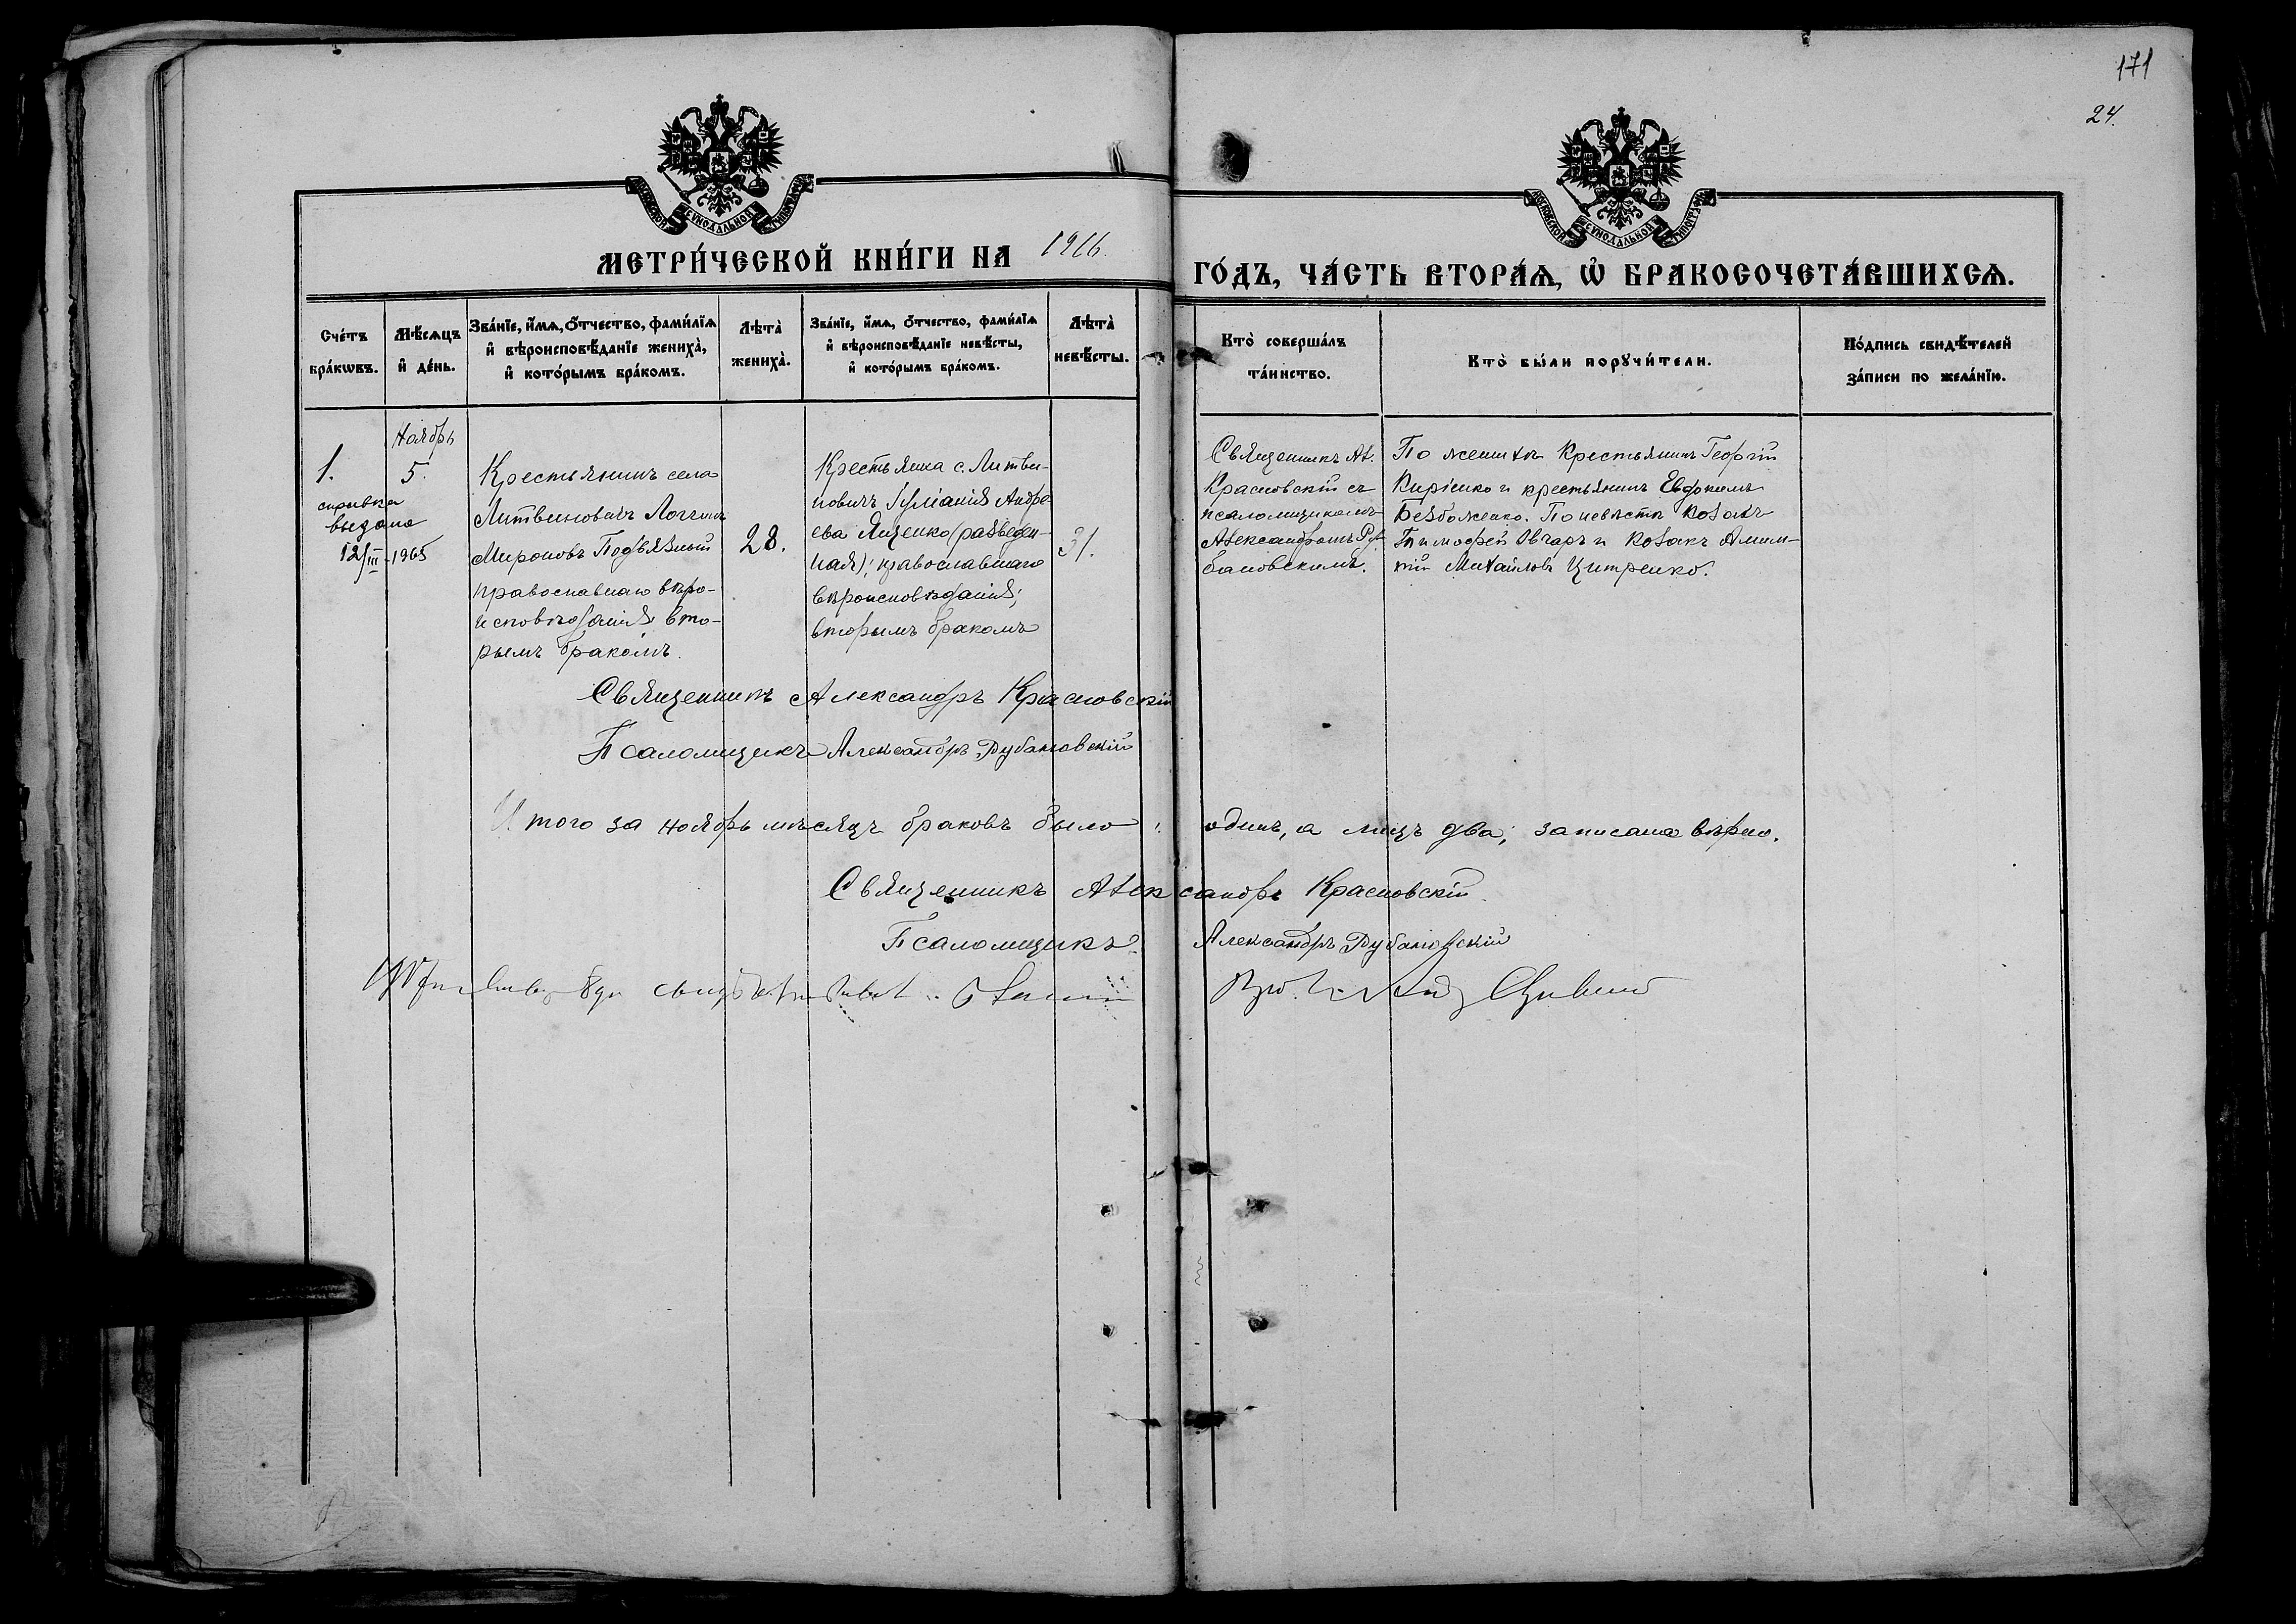 171
24.
МОСКОВСКОЙ СУНОДАЛЬНОЙ ТИПОГРАФІИ
МОСКОВСКОЙ СУНОДАЛЬНОЙ ТИПОГРАФІИ
МЕТРИ́ЧЕСКОЙ КНИ́ГИ НА 1916.
ГО́ДЪ, ЧА́СТЬ ВТОРА́Я, Ѡ҆ БРАКОСОЧЕТА́ВШИХСЯ.
Сче́тъ
бра́кѡвъ.
Мѣ́сяцъ
и҆ де́нь.
Зва́нїе, и҆́мя, ѻ҆́тчество, фами́лїя
и҆ вѣроисповѣ́данїе жениха̀,
и҆ кото́рымъ бра́комъ.
Лѣта̀
жениха̀.
Зва́нїе, и҆́мя, ѻ҆́тчество, фами́лїя
и҆ вѣроисповѣ́данїе невѣ́сты,
и҆ кото́рымъ бра́комъ.
Лѣта̀
невѣ́сты.
Кто̀ соверша́лъ
та́инство.
Кто̀ бы́ли порꙋчи́тели.
По́дпись свидѣ́телей
за́писи по жела́нїю.
1.
справка
выдана
12/III-1965
Ноябрь
5.
Крестьянинъ села
Литвиновичъ Логгинъ
Мироновъ Подвязный
православнаго вѣро-
исповѣданія, вто-
рымъ бракомъ.
28.
Крестьянка с. Литви-
новичъ Іуліанія Андре
ева Яценко (разведен-
ная); православнаго
вѣроисповѣданія;
вторымъ бракомъ
31.
Священникъ Ал.
Красновскій съ
псаломщикомъ
Александромъ Ру-
бановскимъ.
По женихѣ Крестьянинъ Георгій
Киріенко и крестьянинъ Евдокимъ
Безбоженко. По невѣстѣ козакъ
Тимофей Овчаръ и козакъ
Михайловъ
Священникъ Александръ Красновскій
Псаломщикъ Александръ Рубановскій
Итого за ноябрь мѣсяцъ браковъ было: одинъ, а лицъ два; записано вѣрно.
Священникъ Александръ Красновскій.
Псаломщикъ Александръ Рубановскій